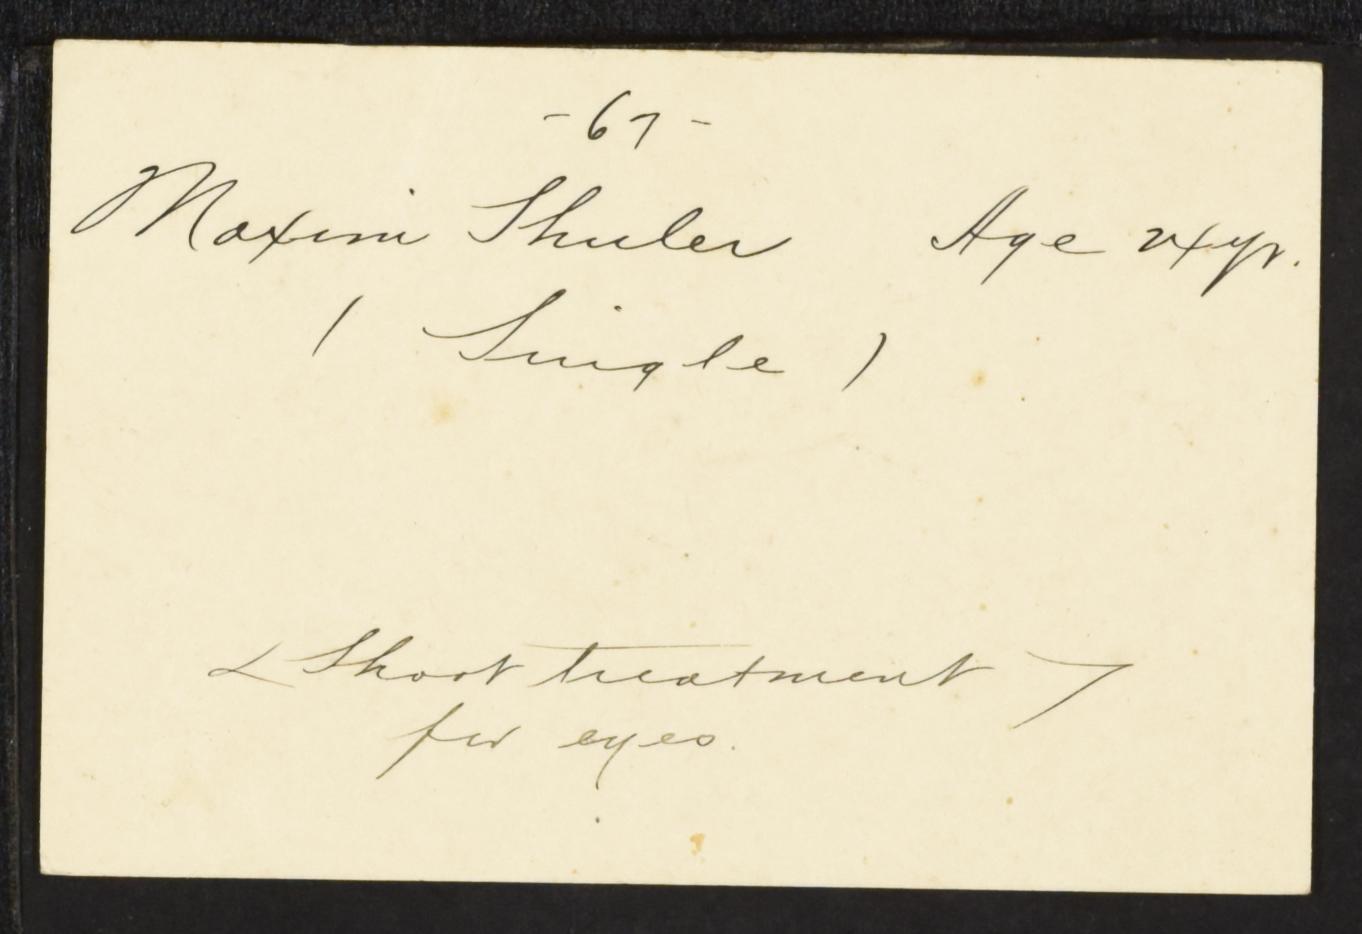 - 67 -
Maxini Shuler Age 24 yr.
( Single )
< Shoot treatment >
for eyes.